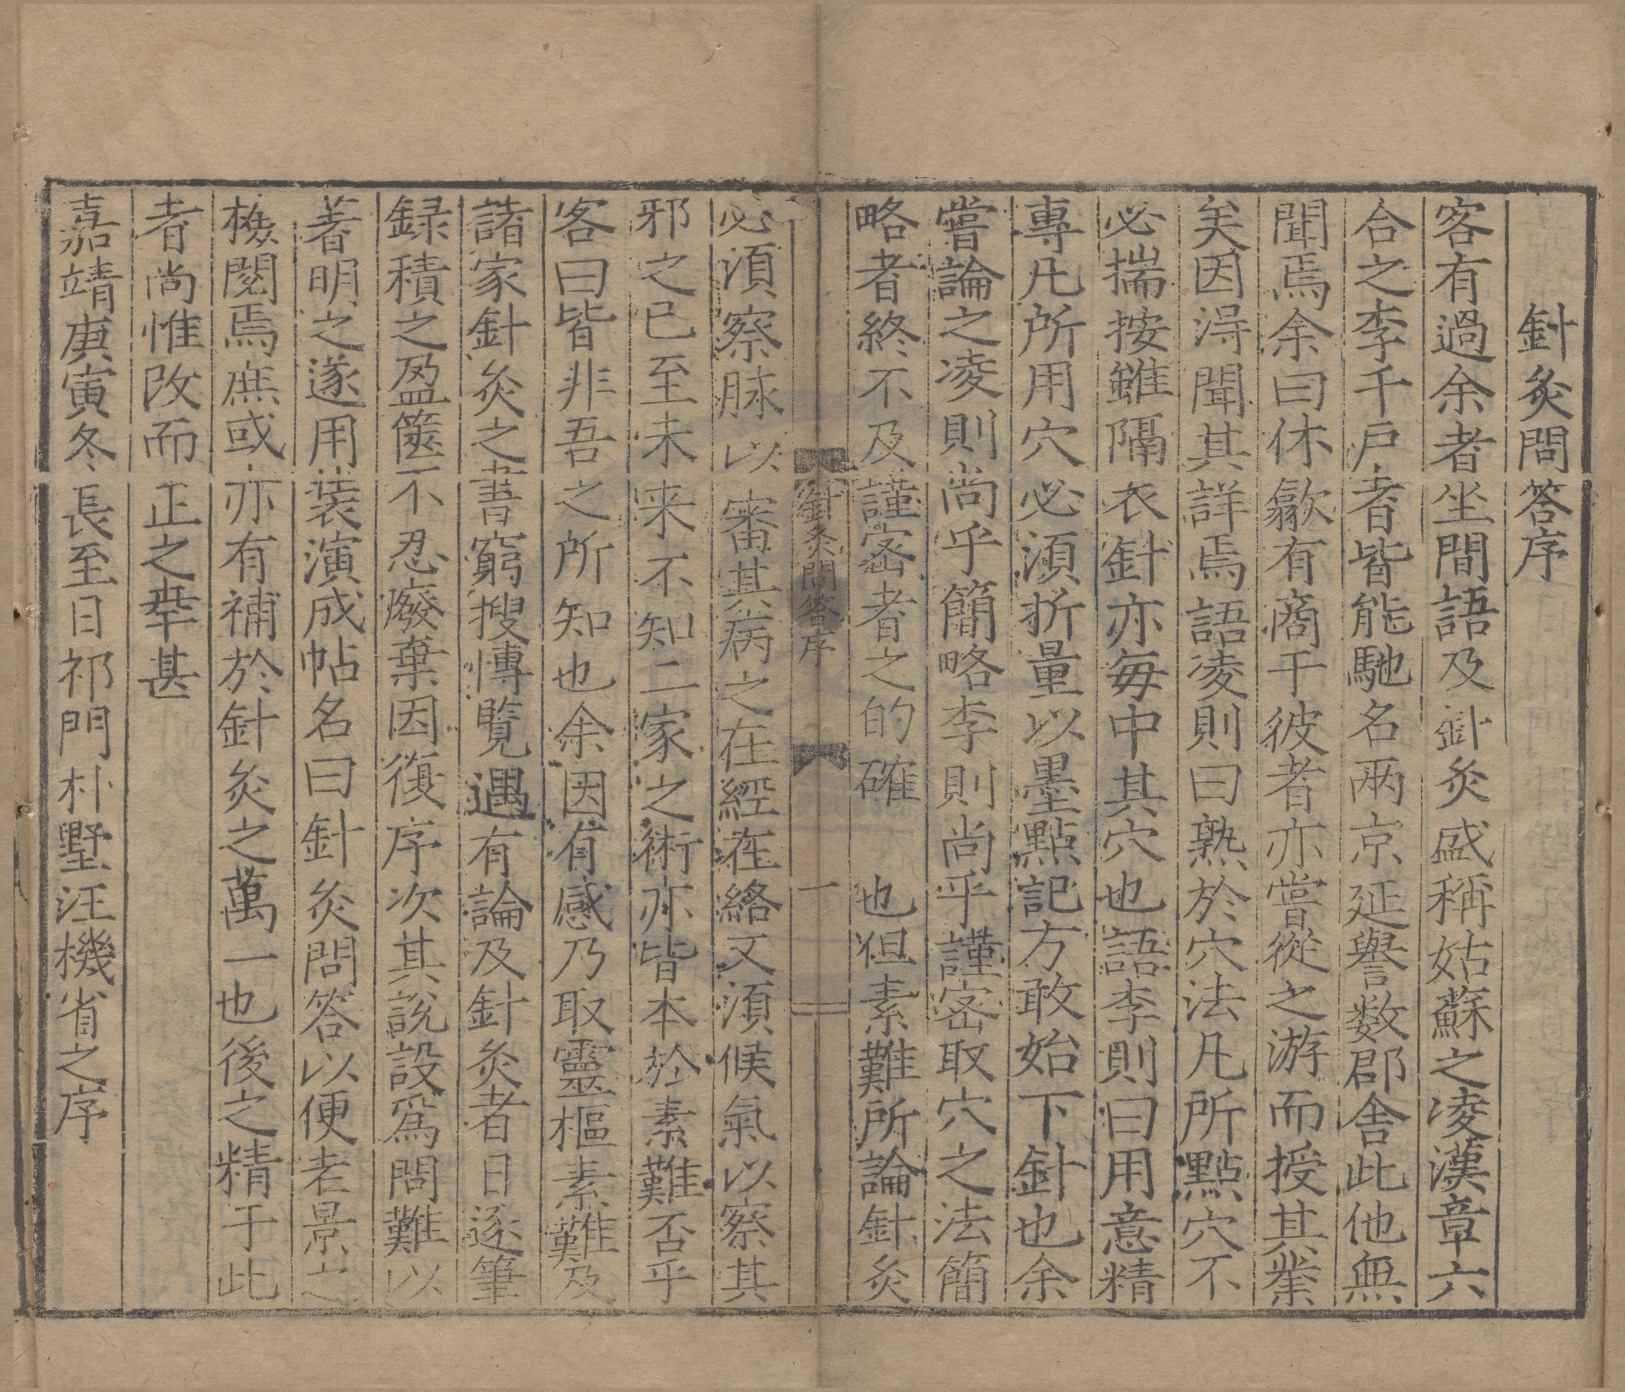 針灸問答序
客有過余者坐間語及針灸盛稱姑蘇之凌漢章六
合之李千戶者皆能馳名兩京延譽数郡舎此他無
聞焉余曰休歙有商于彼者亦嘗從之游而授其業
矣因淂聞其詳焉語凌則曰熟於穴法凡所點穴不
必揣按雖隔衣針亦每中其穴也語李則曰用意精
專凡所用穴必湏折量以墨點記方敢始下針也余
嘗論之凌則尚乎簡略李則尚乎謹宻取穴之法簡
略者終不及謹宻者之的確也但素難所論針灸
針灸問答序 一
必湏察脉以審其病之在經在絡又湏候氣以察其
邪之已至未来不知二家之術亦皆本於素難否乎
客曰皆非吾之所知也余因有感乃取靈樞素難及
諸家針灸之書窮搜慱覽遇有論及針灸者日逐筆
録積之盈篋不忍癈棄因復序次其說設為問難以
著明之遂用裝演成帖名曰針灸問答以便老景之
檢閱焉庶或亦有補於針灸之萬一也後之精于此
者尚惟改而正之幸甚
嘉靖庚寅冬長至日祁門朴墅汪機省之序